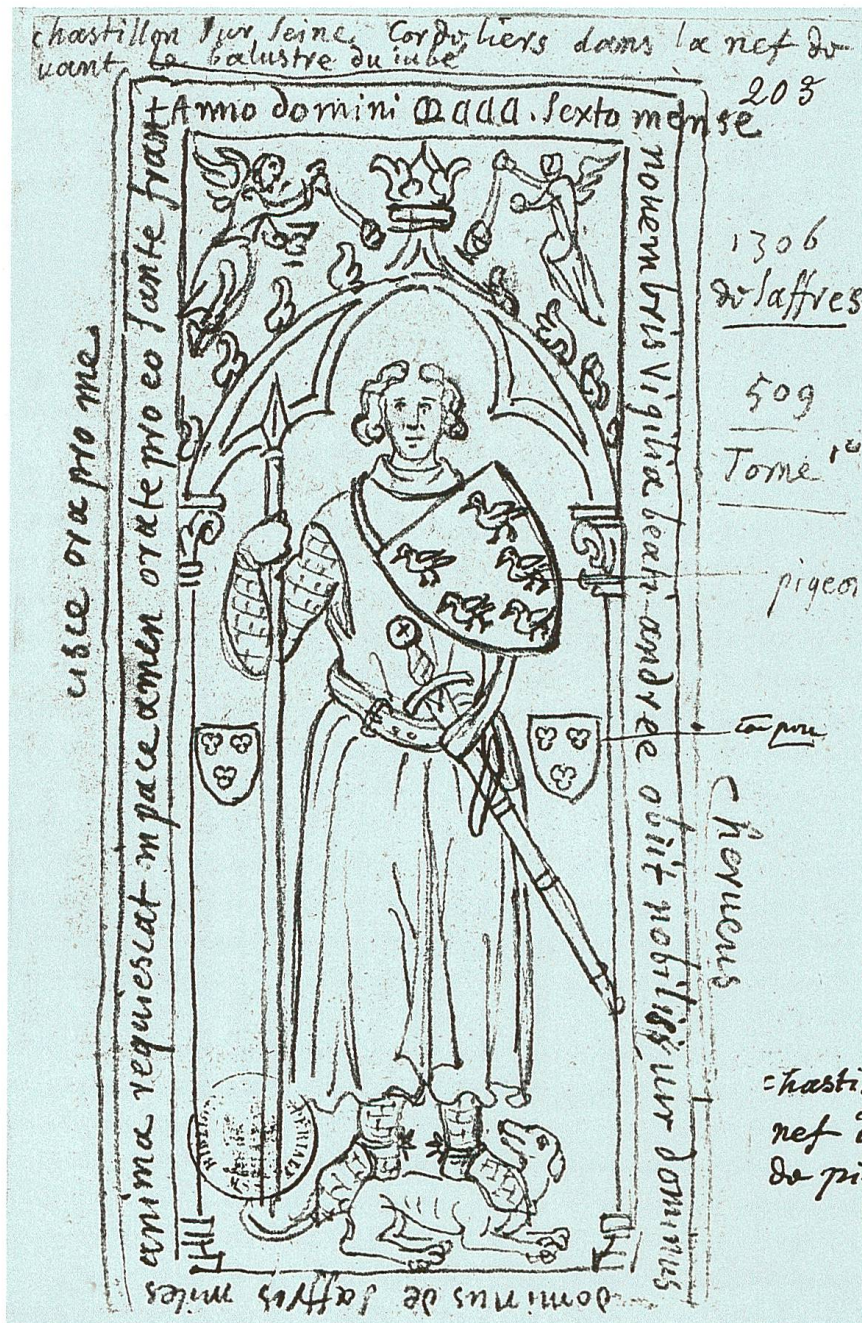 chastillon sur seine Cordeliers dans la nef de
vant le balustre du iubé
203
+Anno domini Mccc. sexto mense
novembris Vigilia beati andree obiit nobilis vir dominus
herveus
dominus de saffres miles
anima requiescat in pace amen orate pro eo sante fran
cisce ora pro me
1306
de saffres
509
Tome
pigeon
chasti
nef
de pi